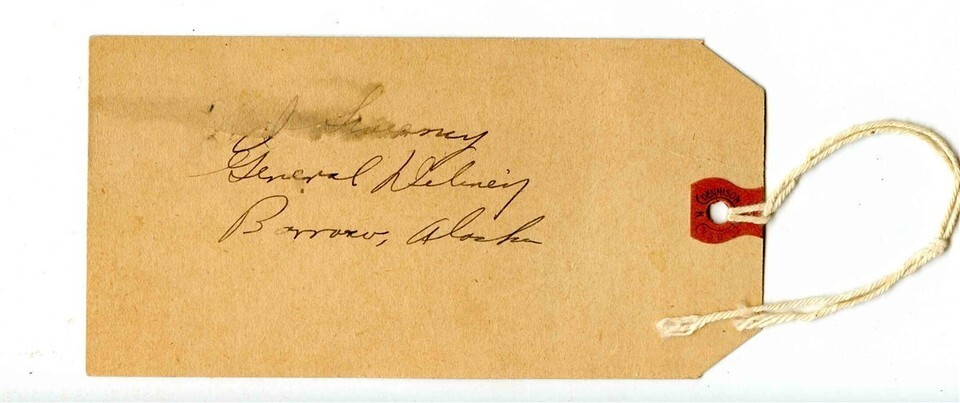 General Delivery
Barrow, Alaska
DENNISON